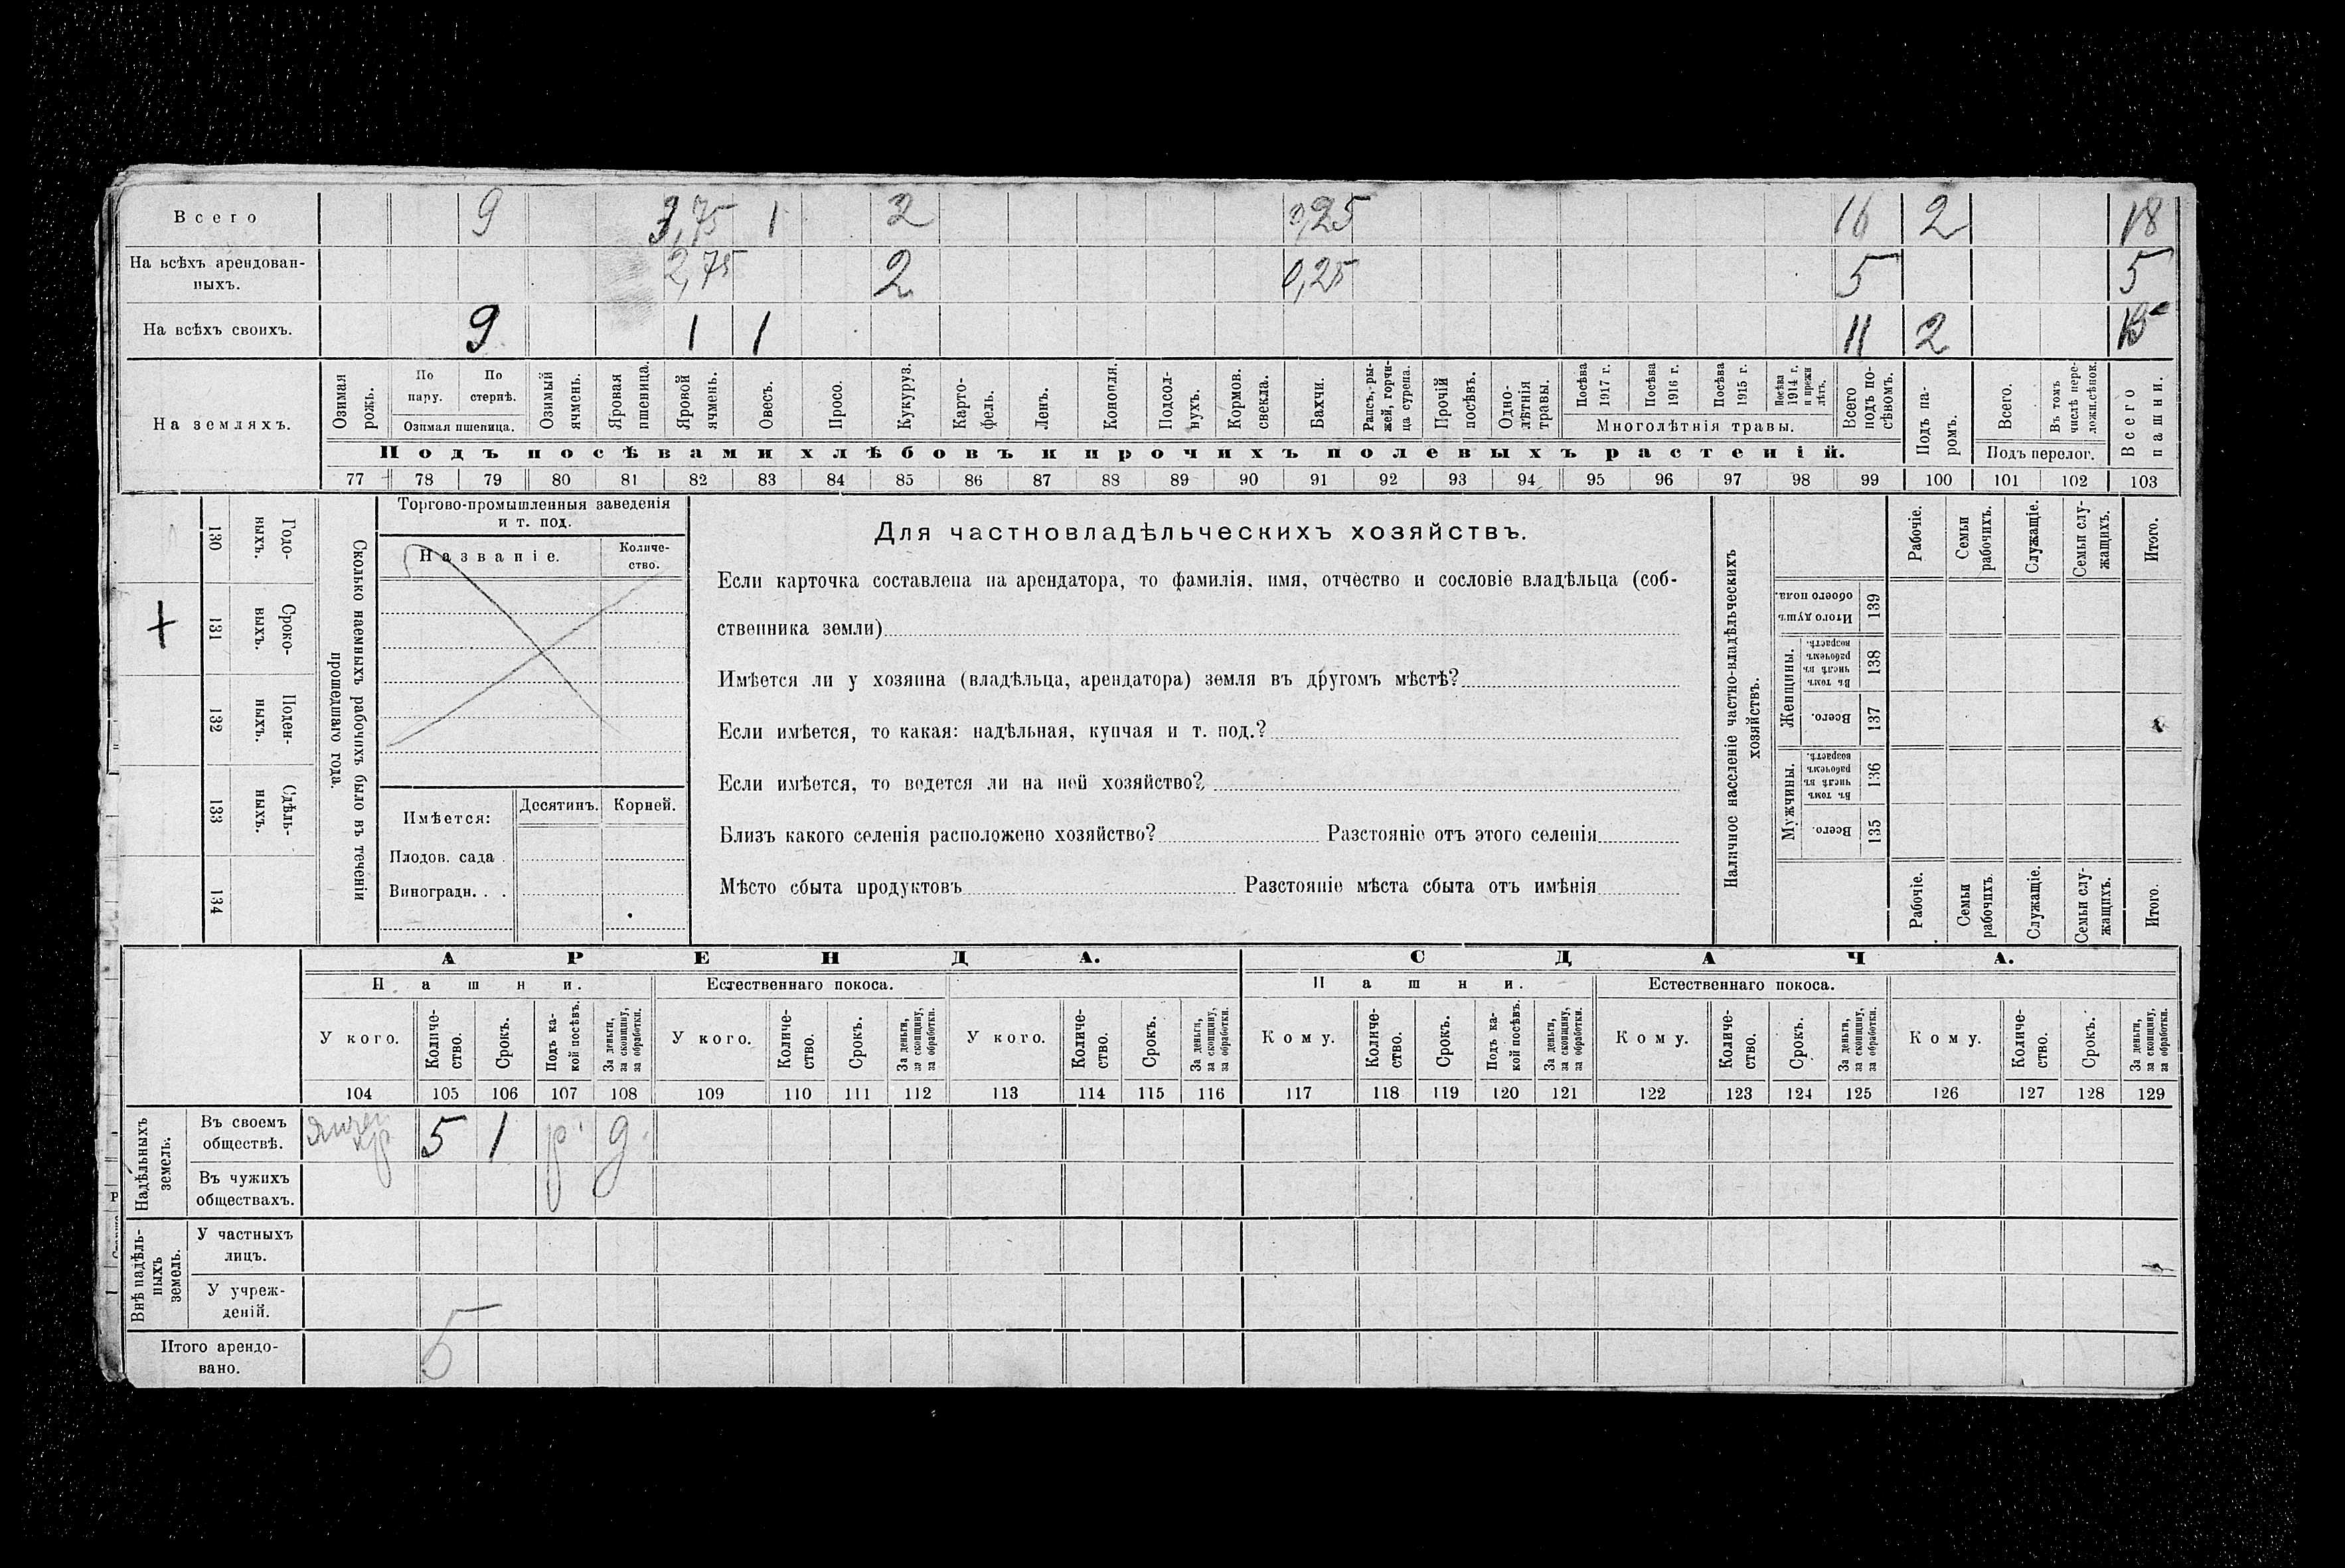 Всего 9 3,75 1 2 0,25 16 2 18
На всѣхъ арендован-
ныхъ. 2,75 2 0,25 5 5
На всѣхъ своихъ. 9 1 1 11 2
На земляхъ.
Озимая рожь.
По пару.
По стернѣ.
Озимая пшеница.
Озимый ячмень.
Яровая пшеница.
Яровой ячмень.
Овесъ.
Просо.
Кукуруз.
Карто-
фель.
Ленъ.
Конопля.
Подсол-
нухъ.
Кормов. свекла.
Бахчи.
Рапсъ, ры-
жей, горчи-
ца сурепа.
Прочій посѣвъ.
Одно-
лѣтнія травы.
Посѣва 1917 г.
Посѣва 1916 г.
Посѣва 1915 г.
Посѣва 1914 г. и прежн лѣтъ.
Многолѣтнія травы.
Всего подъ по-
сѣвомъ.
Подъ па-
ромъ.
Всего.
Въ томъ числѣ пере-
ложн.сѣнок.
Подъ перелог.
Всего пашни.
Подъ посѣвами хлѣбовъ и прочихъ полевыхъ растеній.
77 78 79 80 81 82 83 84 85 86 87 88 89 90 91 92 93 94 95 96 97 98 99 100 101 102 103
130 Годо-
ныхъ.
131 Сроко-
выхъ.
132 Поден-
ныхъ.
133 Сдѣль-
ныхъ.
134
Сколько наемныхъ рабочихъ было въ теченіи
прошедшаго года.
Торгово-промышленныя заведенія
и т. под.
Названіе.
Количе-
ство.
Имѣется:
Десятинъ.
Корней.
Плодов. сада .
Виноградн. . .
Для частновладѣльческихъ хозяйствъ.
Если карточка составлена на арендатора, то фамилія, имя, отчество и сословіе владѣльца (соб-
ственника земли)
Имѣется ли у хозяина (владѣльца, арендатора) земля въ другомъ мѣстѣ?
Если имѣется, то какая: надѣльная, купчая и т. под.?
Если имѣется, то ведется ли на ней хозяйство?
Близъ какого селенія расположено хозяйство? Разстояніе отъ этого селенія
Мѣсто сбыта продуктовъ Разстояніе мѣста сбыта отъ имѣнія
Наличное населеніе частно-владѣльческихъ
хозяйствъ.
Рабочіе.
Семьи рабочихъ.
Служащіе.
Семьи слу-
жащихъ.
Итого.
Итого душъ обоего пола. 139
Женщины.
Въ томъ числѣ въ рабочемъ возрастѣ. 138
Всего. 137
Мужчины.
Въ томъ числѣ въ рабочемъ возрастѣ. 136
Всего. 135
Рабочіе.
Семьи рабочихъ.
Служащіе.
Семьи слу-
жащихъ.
Итого.
АРЕНДА. СДАЧА.
Пашни. Естественнаго покоса. Пашни. Естественнаго покоса.
У кого.
Количе-
ство.
Срокъ.
Подъ ка-
кой посѣвъ.
За деньги, за скопщину, за обработки.
У кого.
Количе-
ство.
Срокъ.
За деньги, за скопщину, за обработки.
У кого.
Количе-
ство.
Срокъ.
За деньги, за скопщину, за обработки.
Кому.
Количе-
ство.
Срокъ.
Подъ ка-
кой посѣвъ.
За деньги, за скопщину, за обработки.
Кому.
Количе-
ство.
Срокъ.
За деньги, за скопщину, за обработки.
Кому.
Количе-
ство.
Срокъ.
За деньги, за скопщину, за обработки.
104 105 106 107 108 109 110 111 112 113 114 115 116 117 118 119 120 121 122 123 124 125 126 127 128 129
Надѣльныхъ земель.
Въ своемъ
обществѣ. 5 1 р. д.
Въ чужихъ
обществахъ.
Внѣ надѣль-
ныхъ земель.
У частныхъ
лицъ.
У учреж-
деній.
Итого арендо-
вано. 5